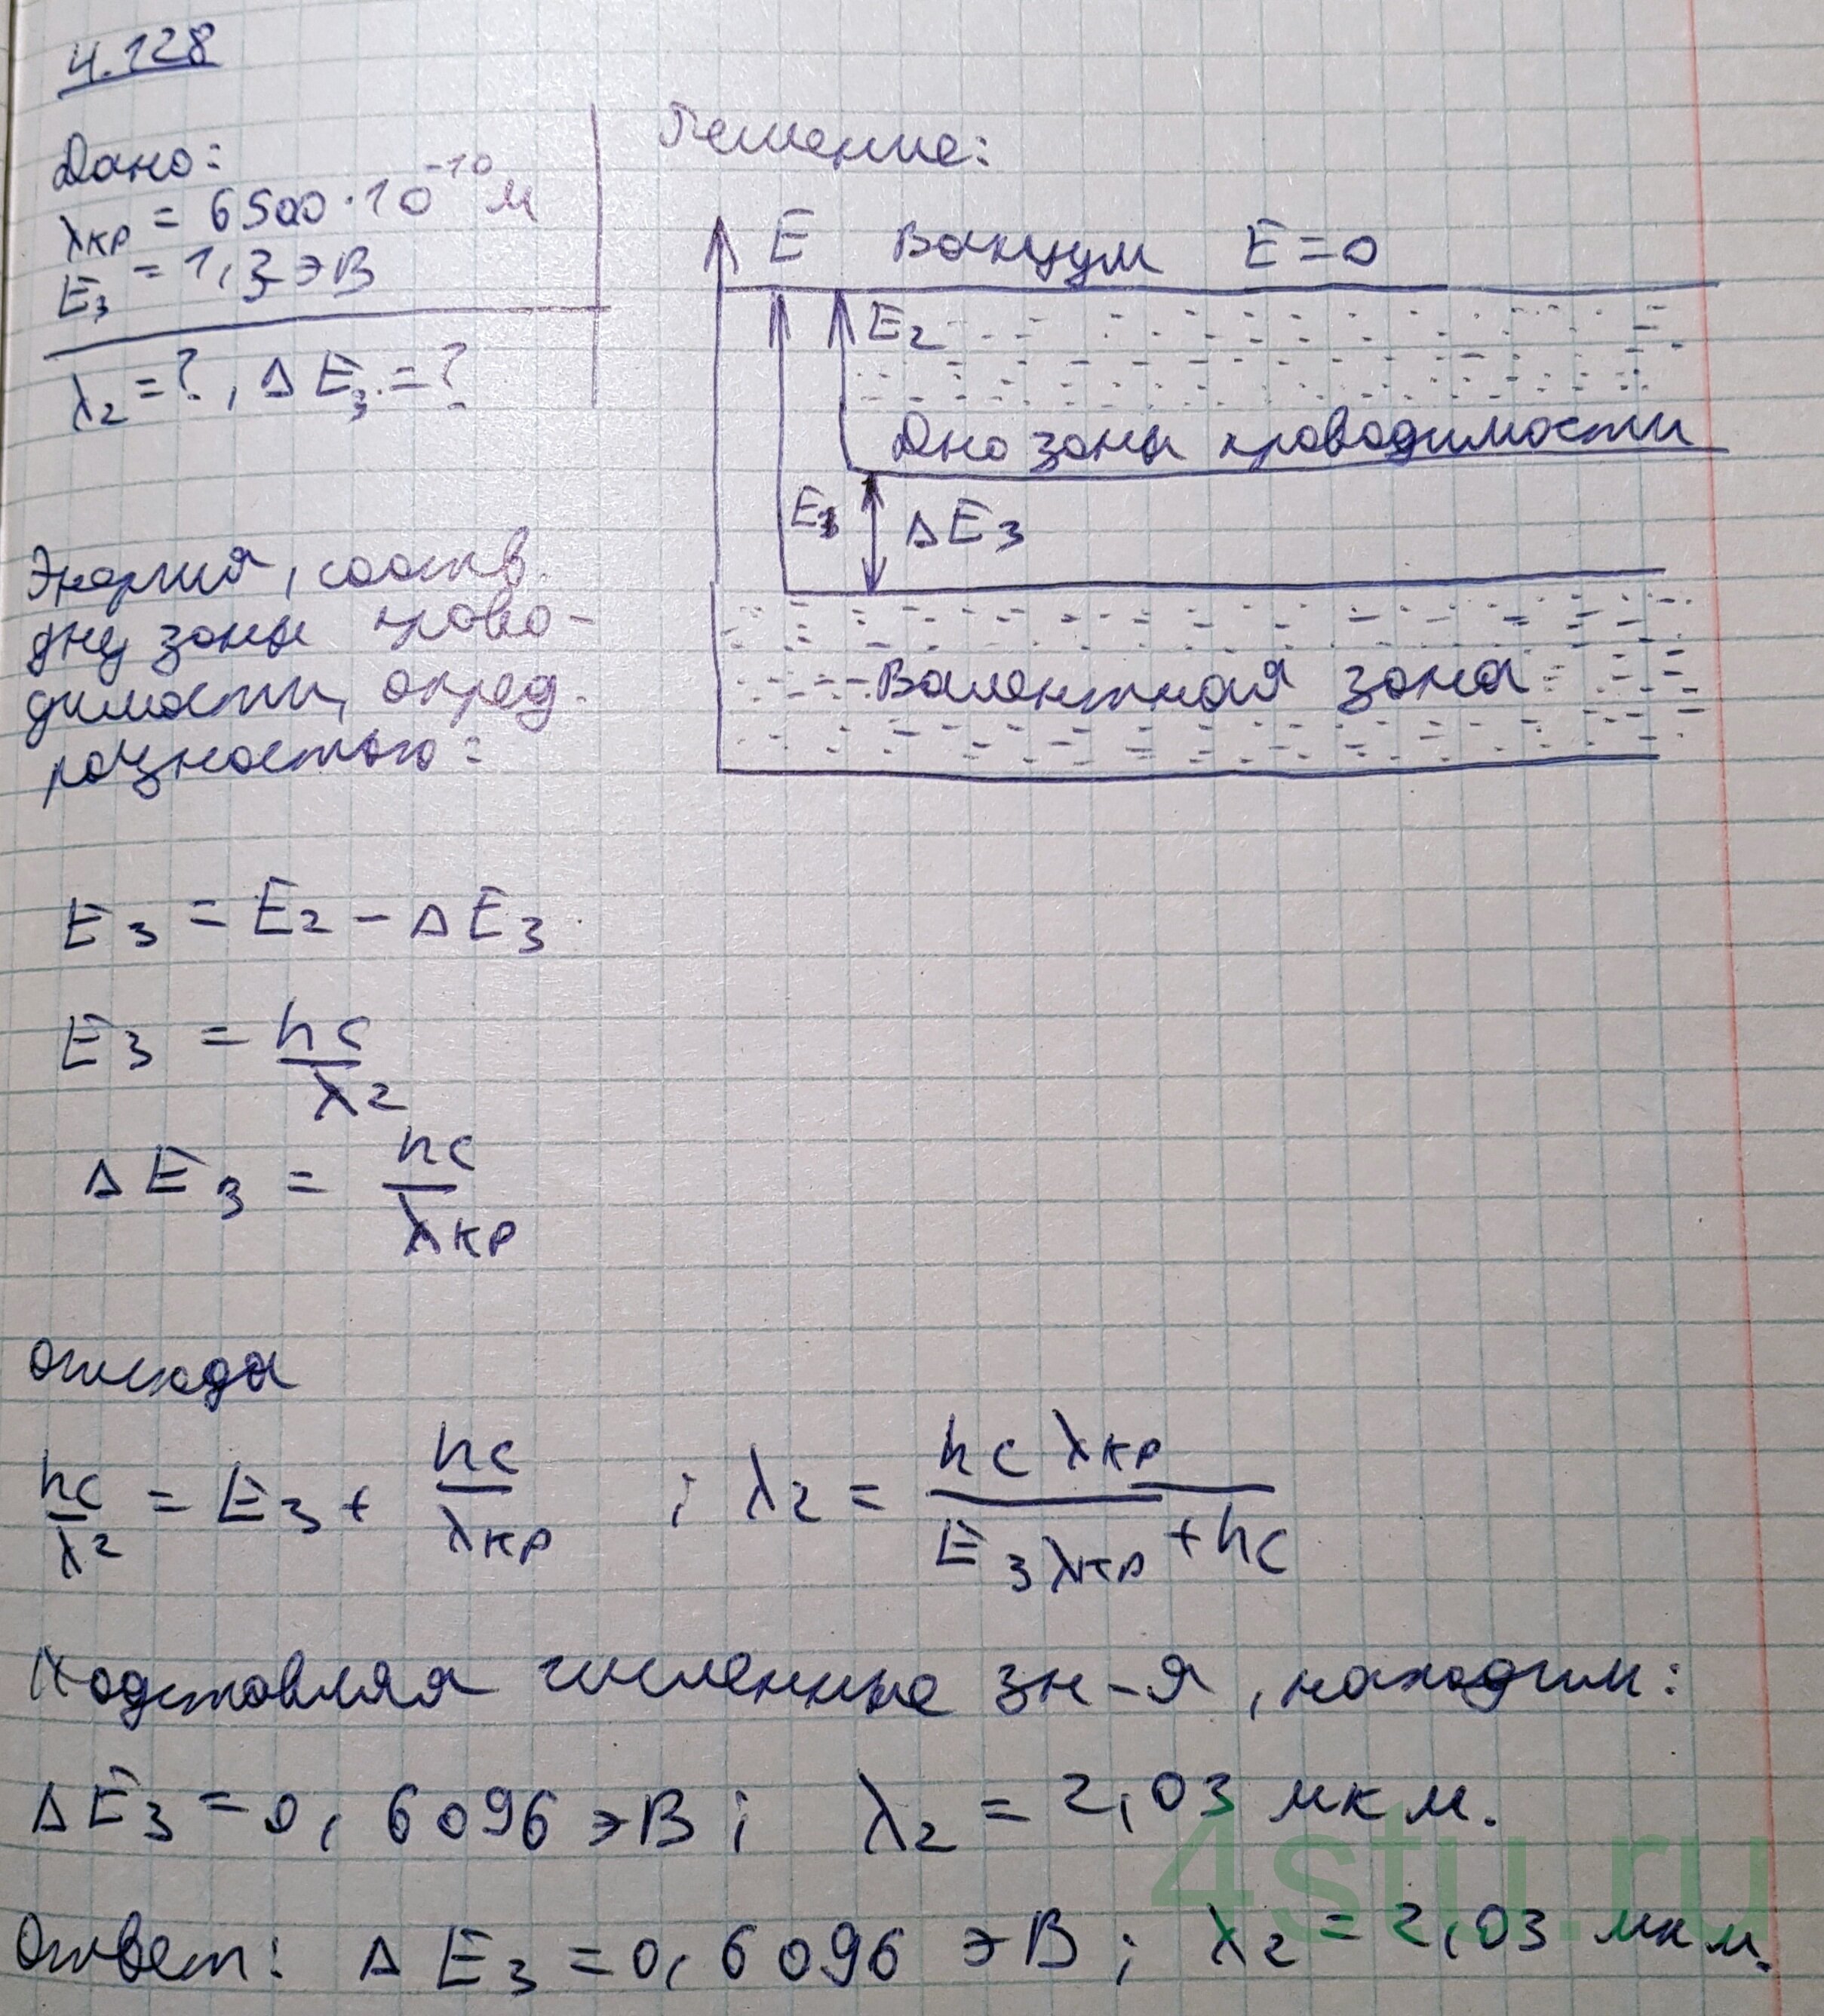 4.128
Дано:
λкр = 6500·10⁻¹⁰ м
E₃ = 1,3 эВ
λ₂ = ?, ΔE₃ = ?
Решение:
E Вакуум E = 0
E₂
Дно зоны проводимости
E₁ ΔE₃
Валентная зона
Энергия, соотв.
дну зоны прово-
димости, опред.
разностью:
E₃ = E₂ - ΔE₃
E₃ = hc/λ₂
ΔE₃ = hc/λкр
откуда
hc/λ₂ = E₃ + hc/λкр ; λ₂ = hc λкр/E₃λкр + hc
Подставляя численные зн-я, находим:
ΔE₃ = 0,6096 эВ; λ₂ = 2,03 мкм.
Ответ: ΔE₃ = 0,6096 эВ; λ₂ = 2,03 мкм.
4stu.ru